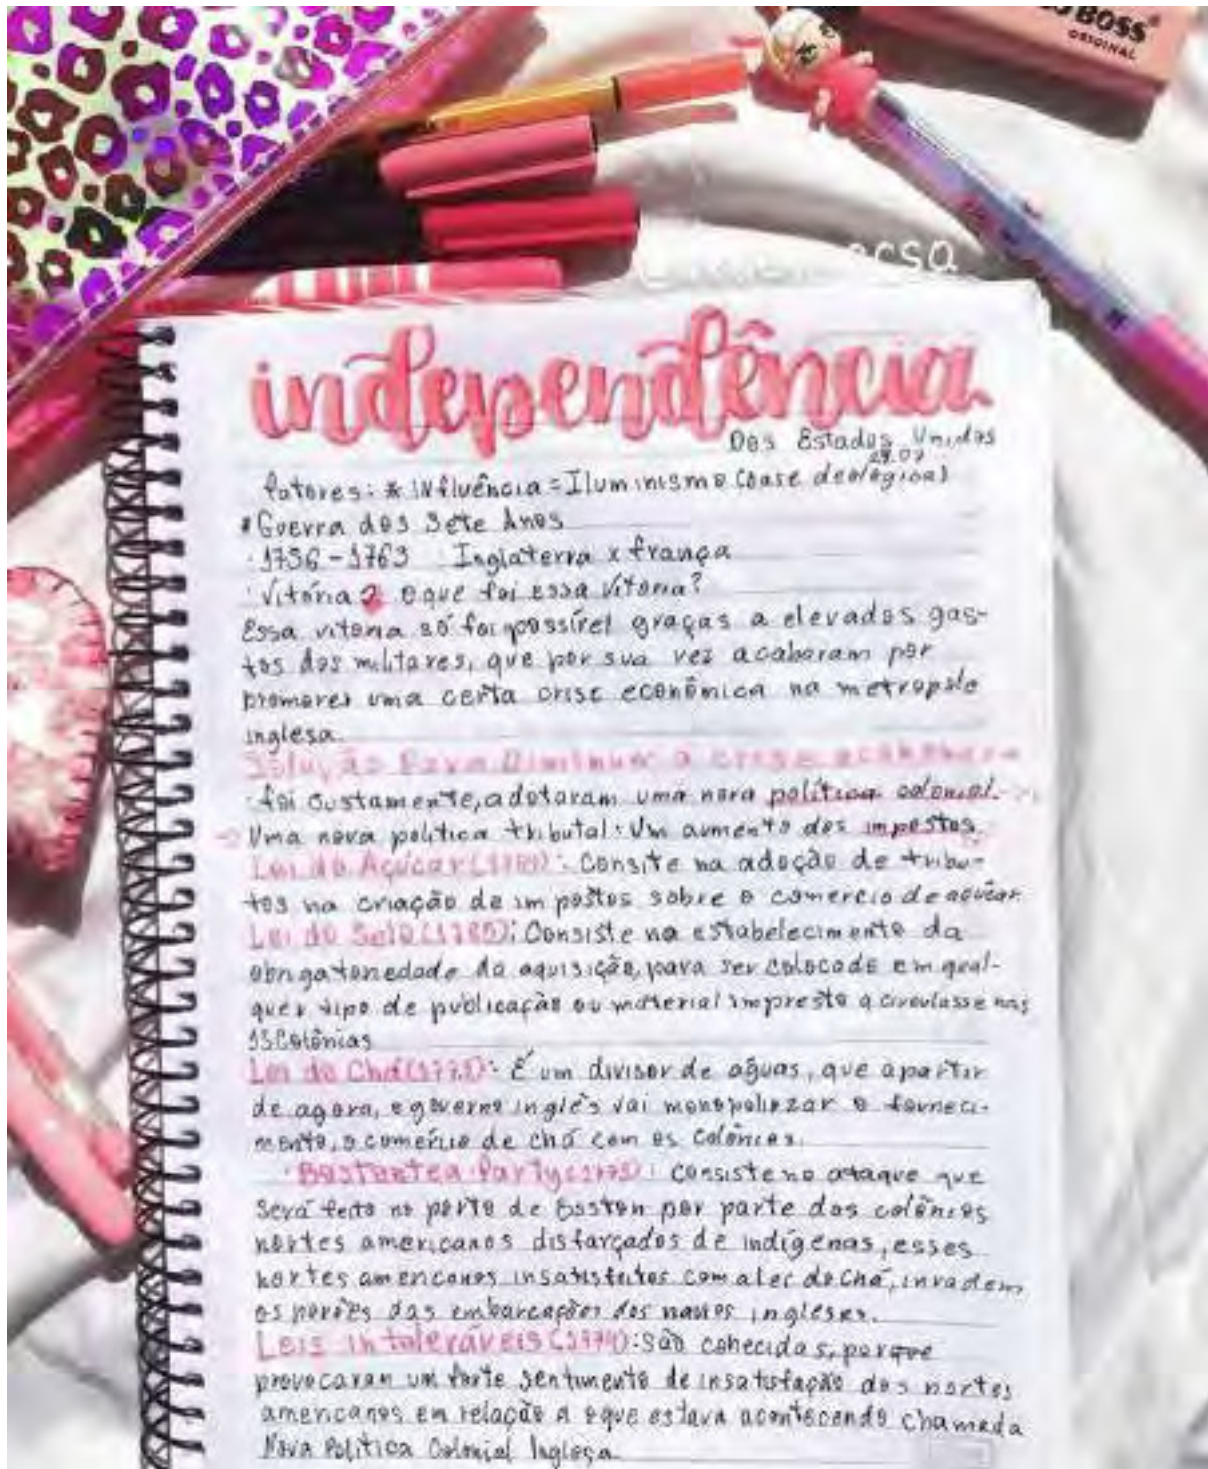 BOSS
ORIGINAL
independência
Dos Estados Unidos
29.07
fatores: * influência = Iluminismo (base deológica)
* Guerra dos Sete Anos
· 1756 - 1763 Inglaterra x frança
· Vitória o que foi essa vitoria?
Essa vitoria só foi possível graças a elevados gas-
tos dos militares, que por sua vez acabaram por
promover uma certa crise econômica na metropole
inglesa.
Solução Para Diminuir a crise
· foi Justamente, adotaram uma nova política colonial.
→ Uma nova politica tributal: Um aumento dos impostos
Lei do Açúcar : Consite na adoção de tribu-
tos na criação de impostos sobre o comercio de açúcar
Lei do Selo (1765): Consiste na estabelecimento da
obrigatoriedade da aquisição, para ser colocado em qual-
quer tipo de publicação ou material impresto q circulasse nas
13 Colônias
Lei do Chá (1773): É um divisor de aguas, que apartir
de agora, o governo inglês vai monopolizar o forneci-
mento, o comércio de chá com as Colônias.
· Boston tea Party (1773): Consiste no ataque que
será feito no porto de Boston por parte dos colônos
nortes americanos disfarçados de indígenas, esses
nortes americanos insatisfeitos com a lei do chá, invadem
os porões das embarcações dos navios ingleses.
Leis intoleráveis (1774): São cohecidas, porque
provocaram um forte sentimento de insatisfação dos nortes
americanos em relação a oque estava acontecendo chamada
Nova Politica Colonial Inglesa